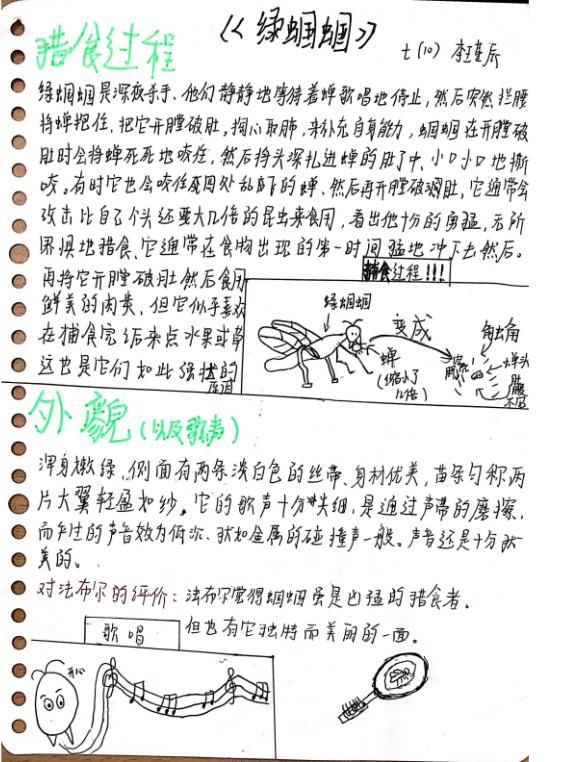 《绿蝈蝈》
猎食过程
七(10) 李
绿蝈蝈是深夜杀手、他们静静地等待着蝉歌唱地停止，然后突然拦腰
将蝉抱住、把它开膛破肚，掏心取肺，来补充自身能力，蝈蝈在开膛破
肚时会将蝉死死地咬住，然后将头深扎进蝉的肚子中、小口小口地撕
咬。有时它也会咬住四处乱的蝉、然后再开膛破肚，它通常会
攻击比自己个头还要大几倍的昆虫来食用，看出他十分的勇猛，无所
畏惧地猎食、它通常在食物出现的第一时间猛地冲下去然后。
再将它开膛破肚然后食用
鲜美的肉类，但它似乎喜欢
在捕食完后来点水果或草
这也是它们如此强壮的
原因
捕食过程!!!
绿蝈蝈
变成
蝉
(缩小了
几倍)
蝉头
外貌(以及歌声)
浑身嫩绿、侧面有两条淡白色的丝带、身材优美，苗条匀称两
片大翼轻盈如纱。它的歌声十分尖细，是通过声带的磨擦，
而的声音效为低沉、犹如金属的碰撞声一般。声音还是十分
美的。
对法布尔的评价：法布尔觉得蝈蝈虽是凶猛的猎食者。
但也有它独特而美丽的一面。
歌唱
开心